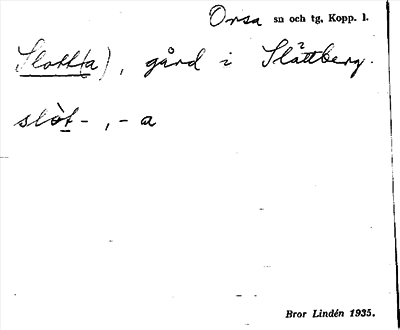 Orsa sn och tg, Kopp. l.
Slott(a), gård i Slättberg.
slòt-, -a
Bror Lindén 1935.